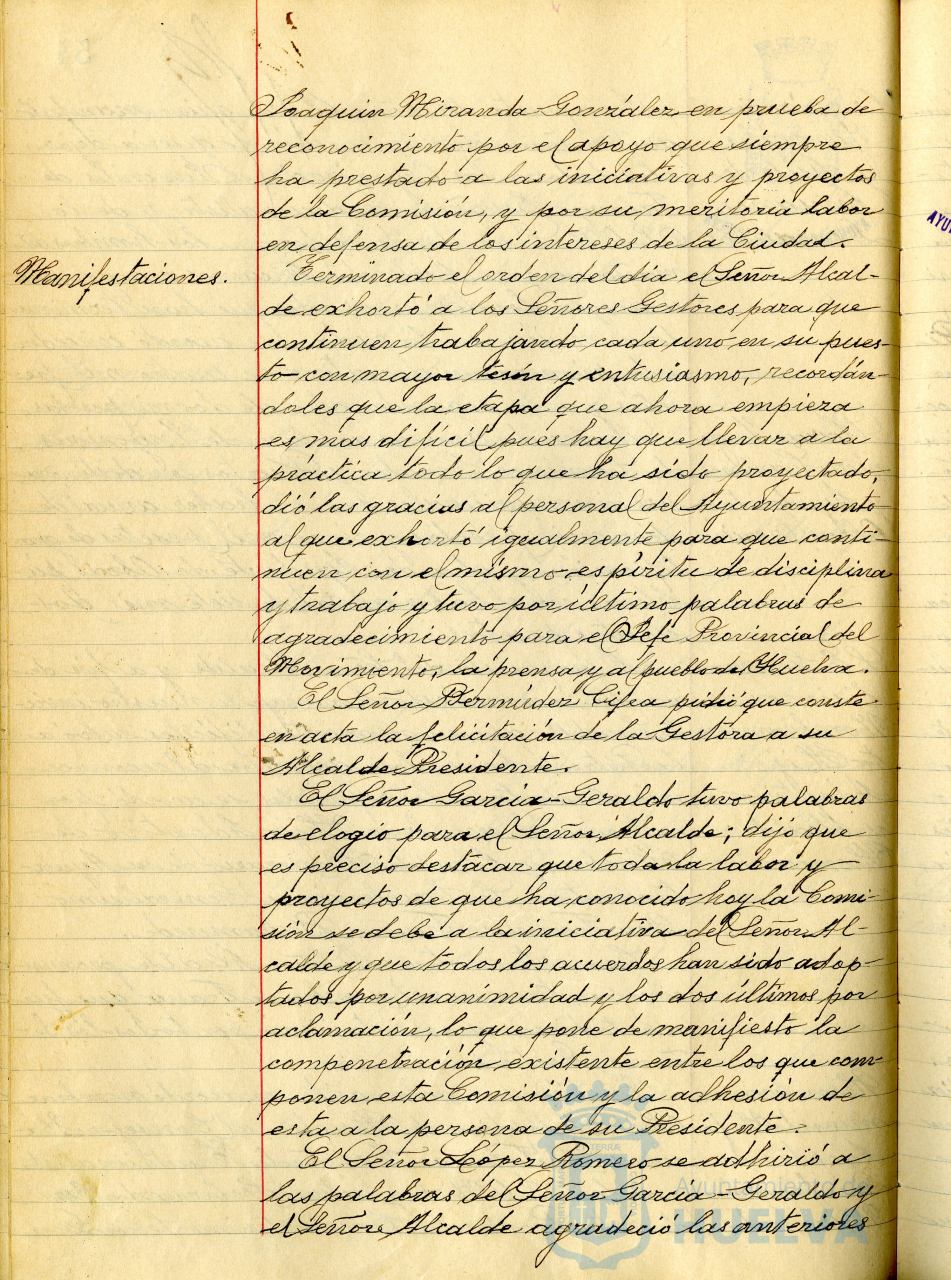 Joaquin Miranda González en prueba de
reconocimiento por el apoyo que siempre
ha prestado a las iniciativas y proyectos
de la Comisión, y por su meritoria labor
en defensa de los intereses de la Ciudad.
Manifestaciones.
Terminado el orden del dia el Señor Alcal-
de exhortó a los Señores Gestores para que
continuen trabajando cada uno en su pues-
to con mayor tesón y entusiasmo, recordán-
doles que la etapa que ahora empieza
es mas difícil pues hay que llevar a la
práctica todo lo que ha sido proyectado,
dió las gracias al personal del Ayuntamiento
al que exhortó igualmente para que conti-
nuen con el mismo espíritu de disciplina
y trabajo y tuvo por último palabras de
agradecimiento para el Jefe Provincial del
Movimiento, la prensa y al pueblo de Huelva.
El Señor Bermúdez Cifea pidió que conste
en acta la felicitación de la Gestora a su
Alcalde Presidente.
El Señor García-Geraldo tuvo palabras
de elogio para el Señor Alcalde; dijo que
es preciso destacar que toda la labor y
proyectos de que ha conocido hoy la Comi-
sión se debe a la iniciativa del Señor Al-
calde y que todos los acuerdos han sido adop-
tados por unanimidad y los dos últimos por
aclamación, lo que pone de manifiesto la
compenetración existente entre los que com-
ponen esta Comisión y la adhesión de
esta a la persona de su Presidente.
El Señor López Romero se adhirió a
las palabras del Señor García-Geraldo y
el Señor Alcalde agradeció las anteriores
Ayuntamiento de
HUELVA
AYU